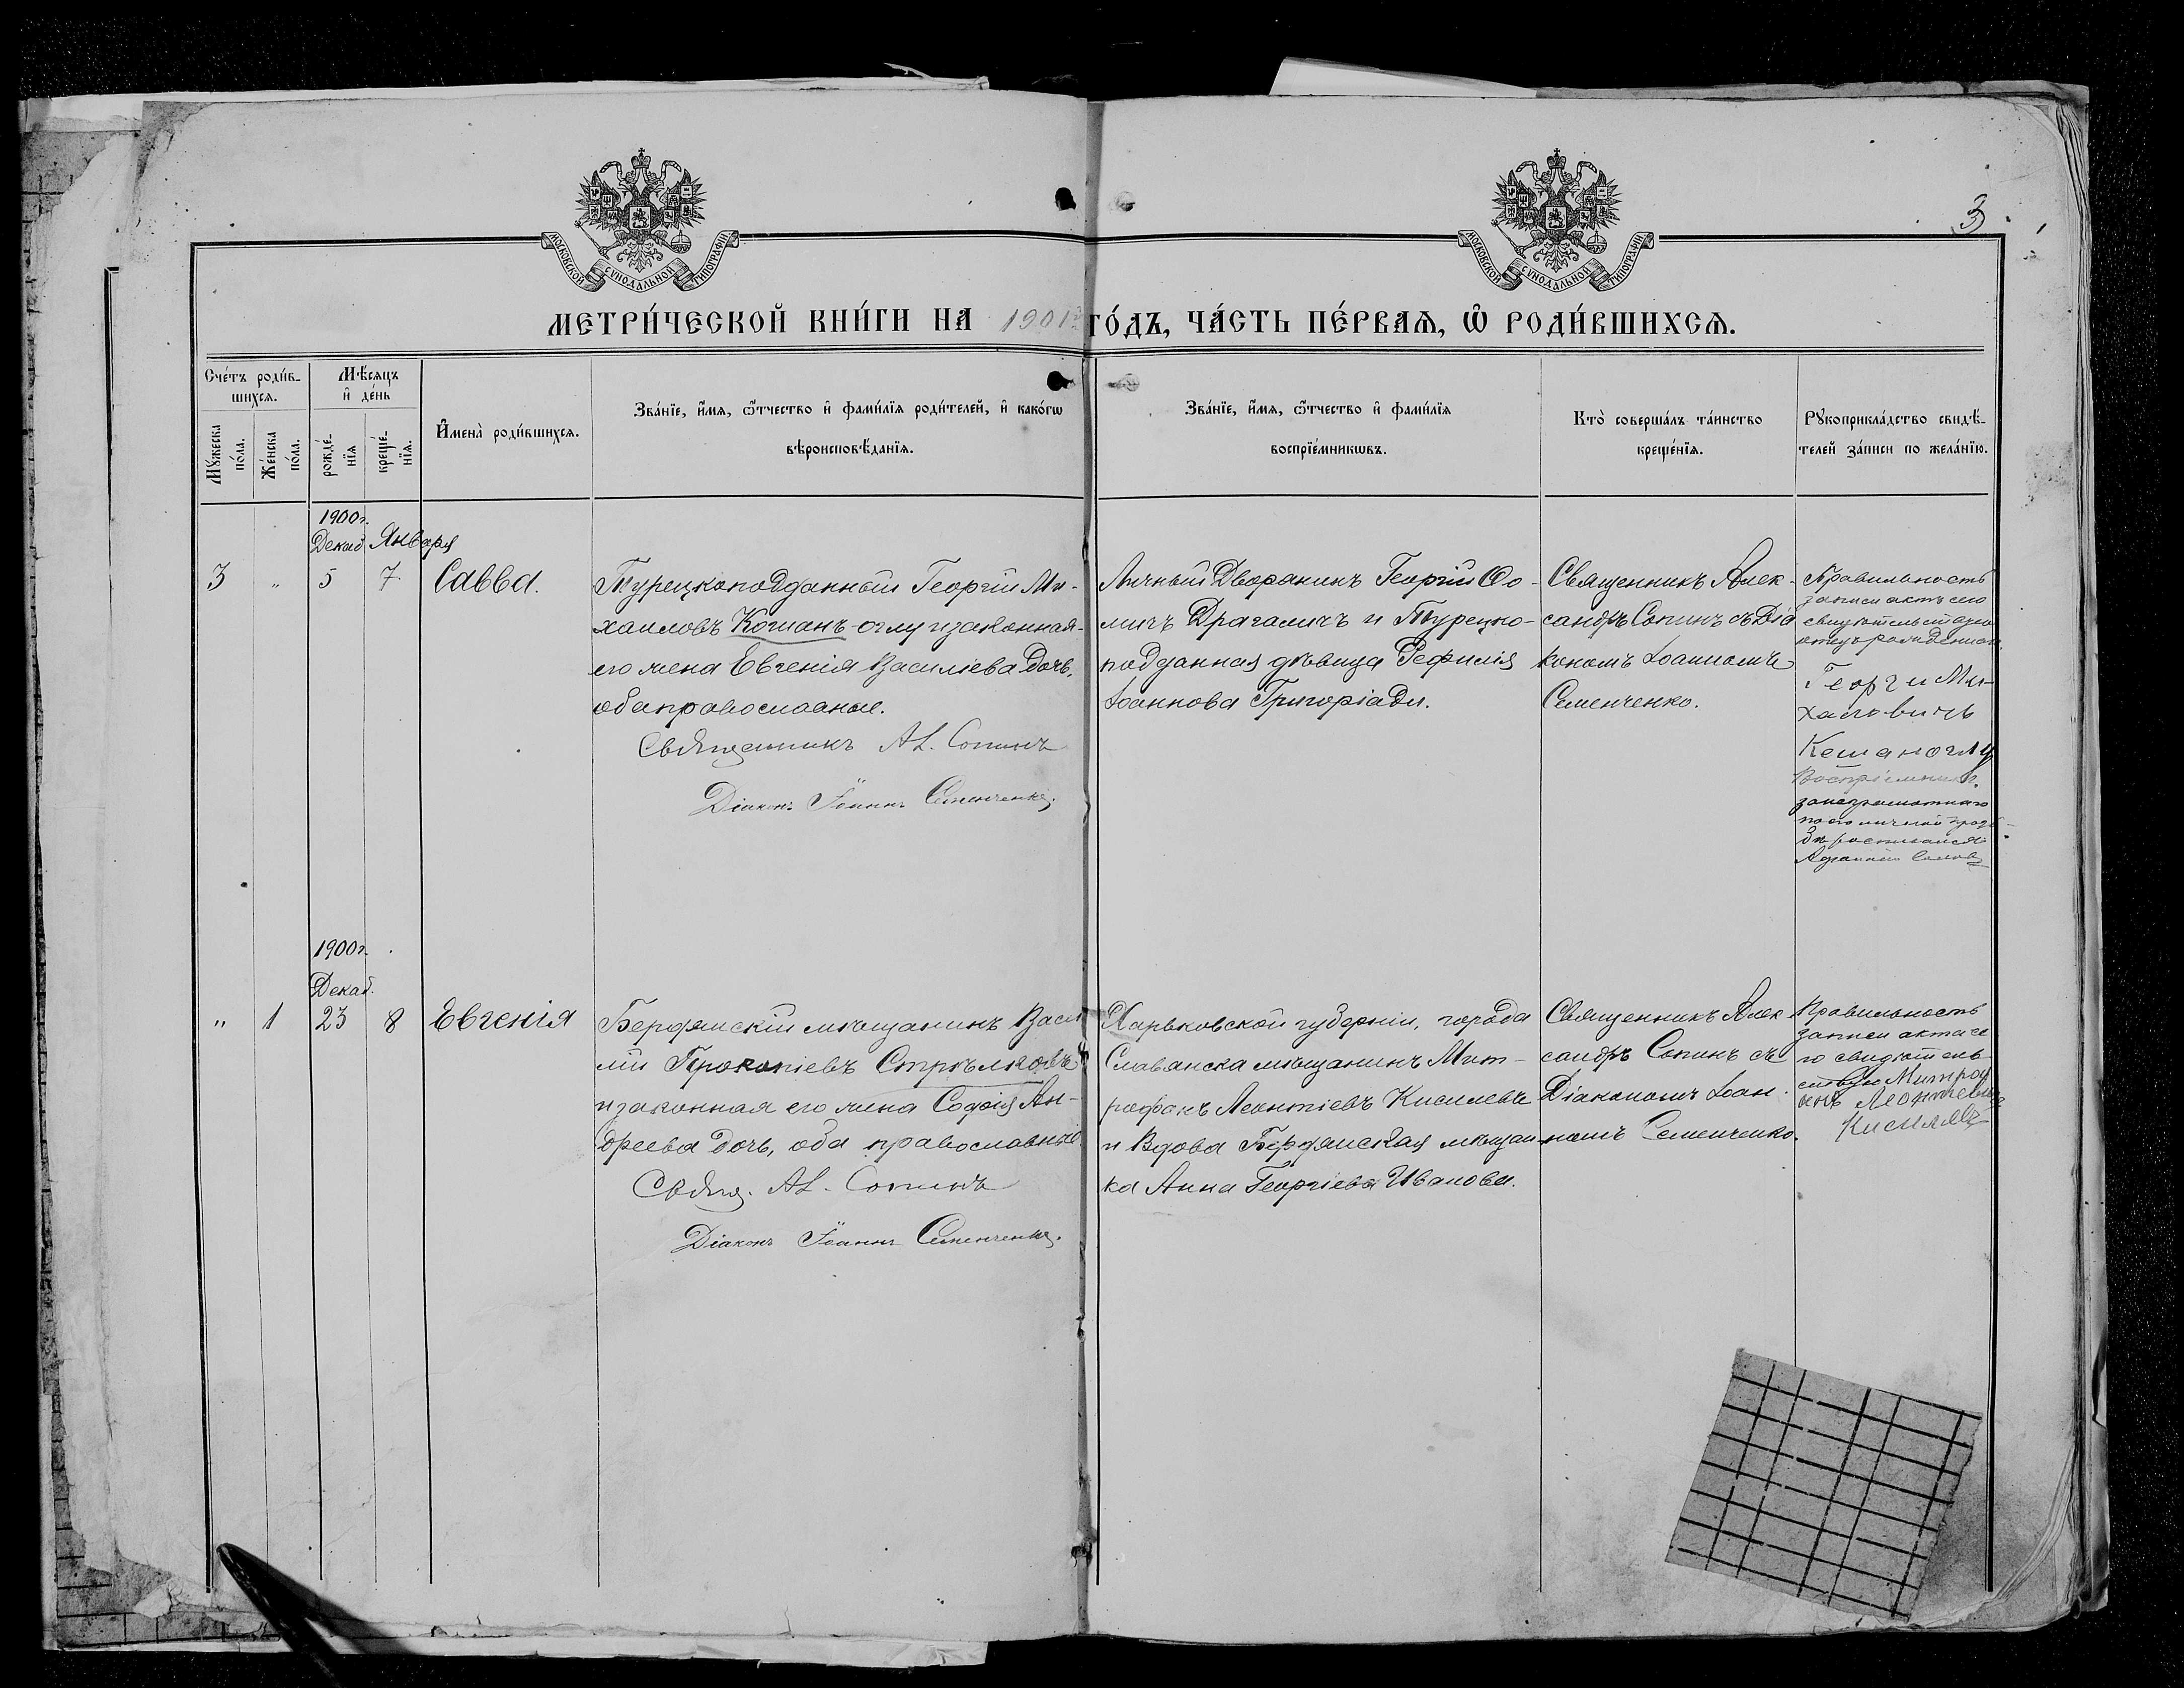 3
МОСКОВСКОЙ СѴНОДАЛЬНОЙ ТИПОГРАФІИ
МОСКОВСКОЙ СѴНОДАЛЬНОЙ ТИПОГРАФІИ
МЕТРИ́ЧЕСКОЙ КНИ́ГИ НА 1901 ГО́ДЪ, ЧА́СТЬ ПЕ́РВАѦ, Ѡ҆ РОДИ́ВШИХСѦ.
Сче́тъ роди́в-
шихсѧ.
Мꙋжеска по́ла.
Же́нска по́ла.
Мѣ́сѧцъ
и҆ де́нь
рожде́-
нїѧ
креще́-
нїѧ.
И҆мена̀ роди́вшихсѧ.
Зва́нїе, и҆́мѧ, ѻ҆́тчество и҆ фами́лїѧ роди́телей, и҆ како́гѡ
вѣроисповѣ́данїѧ.
Зва́нїе, и҆́мѧ, ѻ҆́тчество и҆ фами́лїѧ
воспрїе́мникѡвъ.
Кто̀ соверша́лъ та́инство
креще́нїѧ.
Рꙋкоприкла́дство свидѣ́-
телей за́писи по жела́нїю.
1900г.
Декаб. Января
3 " 5 7. Савва.
Турецкоподданный Георгій Ми-
хаиловъ Кошанъ-оглу и законная
его жена Евгенія Василіева дочь,
оба православные.
Священникъ Ал. Сопинъ
Діаконъ Іоаннъ Семенченко.
Личный Дворянинъ Георгій Ѳо-
мичъ Драгаличъ и Турецко-
подданная дѣвица Рефилія
Іоаннова Григоріади.
Священникъ Алек-
сандръ Сопинъ съ Діа
кономъ Іоанномъ
Семенченко.
Правильность
записи актъ сего
Георги Ми-
хаиловичь
Кешаноглу
Воспріемникъ
1900г.
Декаб.
" 1 23 8 Евгенія
Бердянскій мѣщанинъ Васи
лій Прокопіевъ Стрѣльцовъ
и законная его жена Софія Ан-
дреева дочь, оба православные
Свящ. Ал. Сопинъ
Діаконъ Іоаннъ Семенченко.
Харьковской губерніи, города
Славянска мѣщанинъ Мит-
рофанъ Леонтіевъ Киселевъ
и Вдова Бердянская мѣщан
ка Анна Георгіева Иванова.
Священникъ Алек
сандръ Сопинъ съ
Діакономъ Іоан
номъ Семенченко.
Правильность
записи акта се
го свидѣтель
ствую Митроф
анъ Леонтевичь